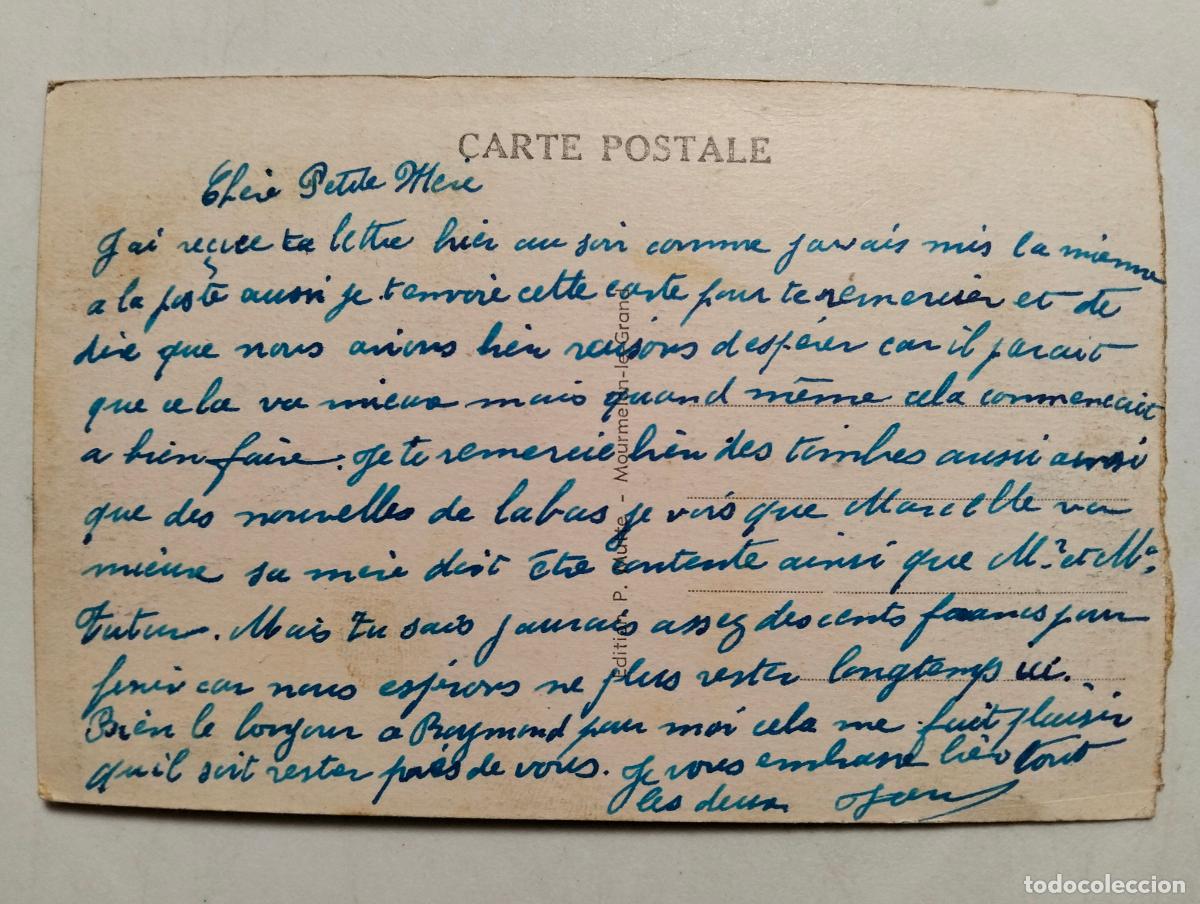 CARTE POSTALE
Chère Petite Mère
J'ai reçue ta lettre hier au soir comme j'avais mis la mienne
a la poste aussi je t'envoie cette carte pour te remercier et te
dire que nous avions bien raisons d'espérer car il parait
que cela va mieux mais quand même cela commencait
a bien faire. Je te remercie bien des timbres aussi ainsi
que des nouvelles de labas je vois que Marcelle va
mieux sa mère doit être contente ainsi que Mr et Me
Tutur. Mais tu sais j'aurais assez des cents francs pour
finir car nous espérons ne plus rester longtemps ici.
Bien le bonjour a Raymond pour moi cela me fait plaisir
qu'il soit rester près de vous. Je vous embrasse bien tout
les deux
Edition P. - Mourmelon-le-Grand
todocoleccion